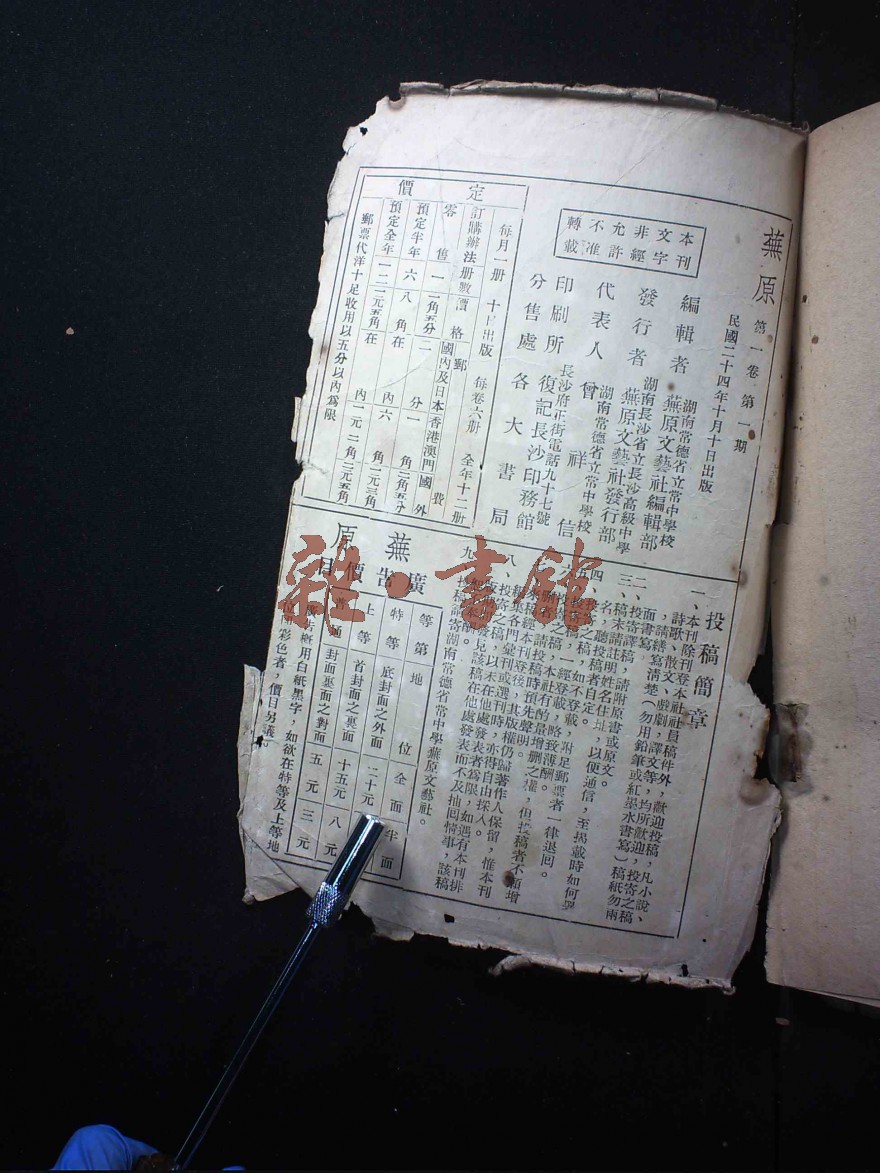 蕪原
第一卷第一期
民國二十四年十月十日出版
編輯者
湖南常德省立常中學校
蕪原文藝社編輯部
發行者
湖南長沙省立長沙高級中學
蕪原文藝社發行部
湖南常德省立常中學校
代表人 曾祥信
印刷所
長沙府正街電話九十七號
復記長沙印務館
分售處 各大書局
本刊
文字
非經
允許
不准
轉載
定價
每月一册 十日出版 每卷六册 全年十二册
訂購辦法 册數 價格 郵費
國內及日本 香港澳門 國外
零售 一 一角五分 二分 一角二角五分
預定半年 六 八角 在內 六角二元三角
預定全年 一二 一元五角 在內 一元二角三元五角
郵票代洋十足收用以五分以內爲限
投稿簡章
一、本刊除刊登本社社員稿件外，歡迎投稿，凡小說、
詩歌、散文、戲劇、譯文等，均所歡迎，投寄之稿
，請繕寫清楚（勿用鉛筆或紅墨水書寫）稿紙勿兩
面書寫。
二、投寄譯稿，請附原書或原文。
三、稿末請註明姓名住址，以便通信，至揭載時如何署
名，聽投稿者自定。
四、投寄之稿，如不登載，附足郵票者一律退回。
五、投寄之稿，一經登載，略致薄酬。
六、
請投稿時預先聲明。
本社有酌量增删之權，但投稿者不願增
本稿經本刊登後，其版權仍歸著作人保留，惟本刊
編集各門彙刊或選刊時，亦得自由採入。
八、投寄之稿，以未在他處發表者爲限，如遇有本刊排
發見該稿在他處發表而不及抽回情事，該稿
九、投稿請寄湖南常德省常中學蕪原文藝社。
蕪原
廣告價目
等第 地位 全面 半面
特等 底封面之外面 二十元
上等 首封面之裏面 十五元 八元
普通 封面裏面之對面 五元 三元
廣告概用白紙黑字，如欲在特等及上等地
位用彩色者，價目另議。
雜·書館